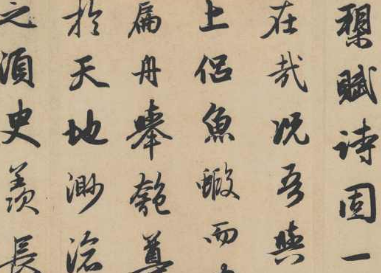 槊賦詩固一
在哉況吾與
上侶魚蝦而
扁舟舉匏尊
於天地渺滄
之須臾羨長